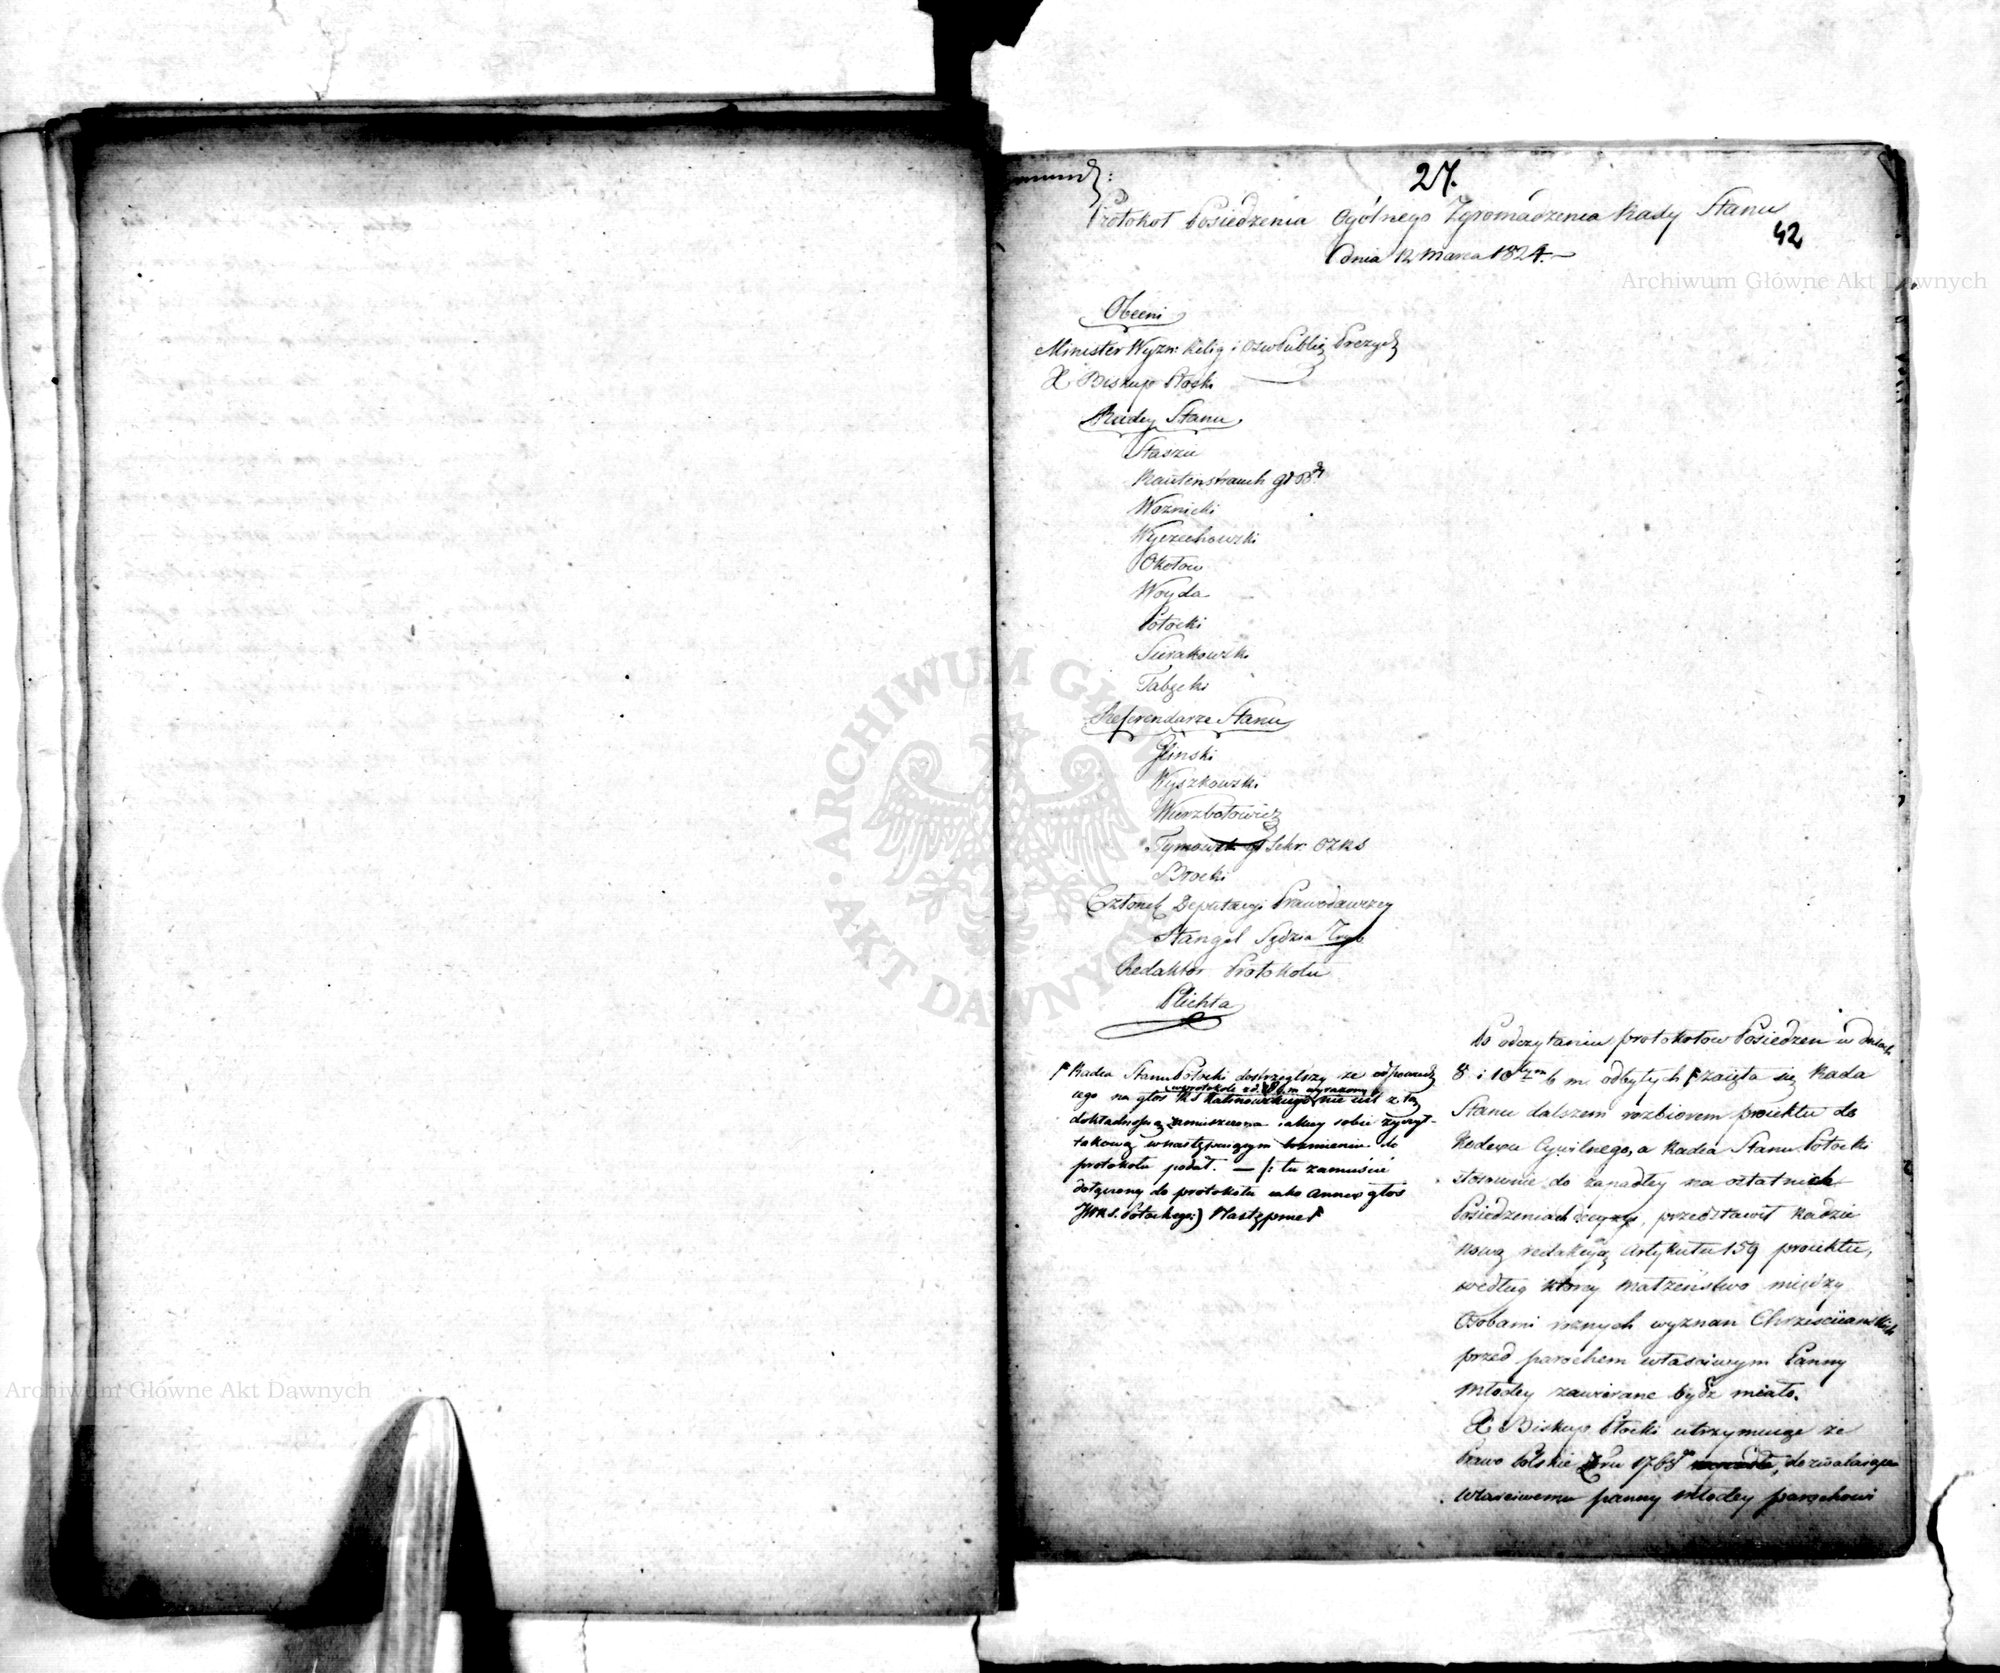 27.
Protokoł Posiedzenia Ogólnego Zgromadzenia Rady Stanu
42
dnia 12 Marca 1824.
Archiwum Główne Akt Dawnych
Obecni
Minister Wyzn: Relig i Ośw Publicz Prezyd
X Biskup Płocki
Radcy Stanu
Staszic
Rautenstrauch
Woznicki
Wyczechowski
Okołow
Woyda
Potocki
Surakowski
Tabęcki
Referendarze Stanu
Glinski
Wyszkowski
Wierzbołowicz
Tymowski Sekr: OZRS
Brocki
Członek Deputacyi Prawodawczey
Stangel Sędzia Tryb
Redaktor Protokołu
Plichta
ARCHIWUM GŁÓWNE AKT DAWNYCH
Po odczytaniu protokołow Posiedzen w dniach
8 i 10tym b m. odbytych zaięła się Rada
Stanu dalszem rozbiorem proiektu do
Kodexu Cywilnego, a Radca Stanu Potocki
stosownie do zapadłey na ostatnich
Posiedzeniach decyzyi, przedstawił Radzie
nową redakcyą Artykułu 159 proiektu,
według ktorey małżeństwo między
Osobami roznych wyznan Chrześciianskich
przed parochem właściwym Panny
młodey zawierane bydź miało.
X Biskup Płocki utrzymuiąc że
Prawo Polskie Zru 1768 dozwalaiące
właściwemu panny młodey parochowi
Radca Stanu Potocki dostrzegłszy ze odpowiedz
w protokole z d. 8 b. m. wyrazony
iego na głos RS Kalinowskiego nie iest z tą
dokładnością umieszczona iakiey sobie zyczył
takową w następuiącym brzmieniu do
protokołu podał. — /: tu zamieścić
dołączony do protokołu iako annex głos
JWRS. Potockiego :) Następnie
Archiwum Główne Akt Dawnych